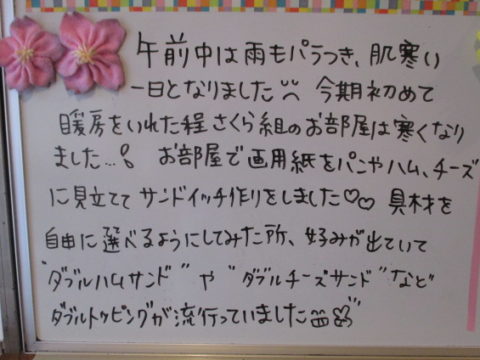 午前中は雨もパラつき、肌寒い
一日となりました 今期初めて
暖房をいれた程さくら組のお部屋は寒くなり
ました…! お部屋で画用紙をパンやハム、チーズ
に見立ててサンドイッチ作りをしました♡♡ 具材を
自由に選べるようにしてみた所、好みが出ていて
"ダブルハムサンド" や "ダブルチーズサンド" など
ダブルトッピングが流行っていました